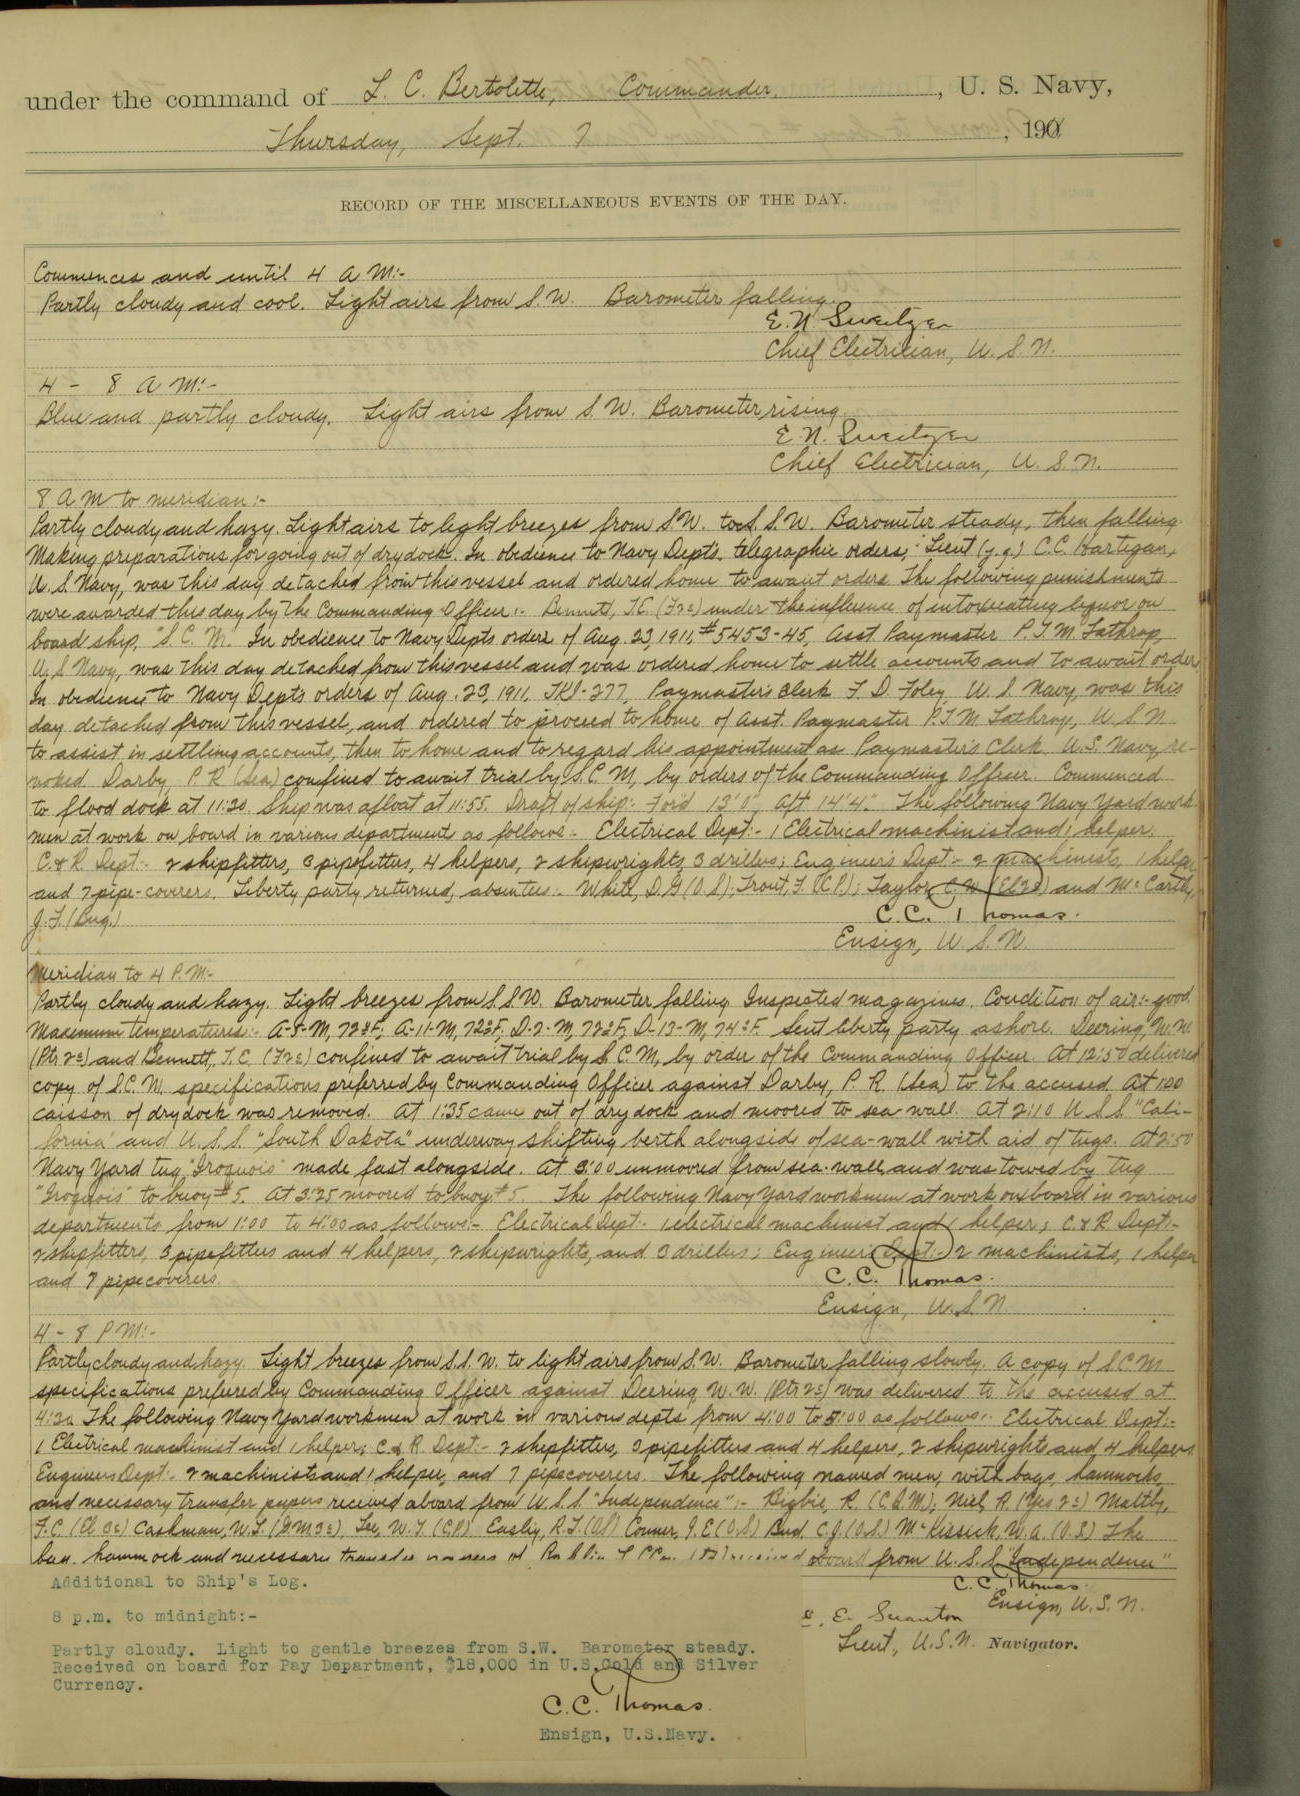 under the command of L. C. Bertolette, Commander, U. S. Navy,
Thursday, Sept. 7, 190
RECORD OF THE MISCELLANEOUS EVENTS OF THE DAY.
Commences and until 4 A M:-
Partly cloudy and cool. Light airs from S.W. Barometer falling.
E. N. Sweitzer
Chief Electrician, U. S. N.
4 - 8 A M:-
Blue and partly cloudy. Light airs from S.W. Barometer rising
E. N. Sweitzer
Chief Electrician, U. S. N.
8 A M to meridian:-
Partly cloudy and hazy. Light airs to light breezes from S.W. to S.S.W. Barometer steady, then falling.
Making preparations for going out of drydock. In obedience to Navy Dept's. telegraphic orders, Lieut (j.g.) C.C. Hartigan,
U. S. Navy, was this day detached from this vessel and ordered home to await orders. The following punishments
were awarded this day by the Commanding Officer:- Bennett, T.C. (F2c) under the influence of intoxicating liquor on
board ship, "S. C. M." In obedience to Navy Depts orders of Aug. 23, 1911, #5453-45, Asst. Paymaster P.T.M. Lathrop,
U. S Navy, was this day detached from this vessel and was ordered home to settle accounts and to await orders
In obedience to Navy Dept's orders of Aug. 23, 1911, Paymaster's Clerk F. D. Foley, U. S. Navy, was this
day detached from this vessel, and ordered to proceed to home of Asst. Paymaster P.T.M. Lathrop, U. S. N
to assist in settling accounts, then to home and to regard his appointment as Paymaster's Clerk U.S. Navy, re-
voked. Darby, P. R (Sea) confined to await trial by S.C.M, by orders of the Commanding Officer. Commenced
to flood dock at 11:20. Ship was afloat at 11:55. Draft of ship:- For'd 13'0", Aft 14'4". The following Navy Yard work-
men at work on board in various department as follows:- Electrical Dept:- 1 Electrical machinist and 1 helper.
C. & R. Dept:- 2 shipfitters, 3 pipefitters, 4 helpers, 2 shipwrights, 3 drillers; Engineer's Dept:- 2 machinists, 1 helper
and 7 pipe-coverers. Liberty party returned, absentees:- White, D.G (O.S); Trout, F. (C.P.); Taylor, C.W. (El2c) and McCarthy,
J. F. (Bug.)
C. C. Thomas.
Ensign, U. S. N.
Meridian to 4 P.M:-
Partly cloudy and hazy. Light breezes from S.S.W. Barometer falling. Inspected magazines. Condition of air:- good.
Maximum temperatures:- A-8-M, 72°F; A-11-M, 72°F; D-2-M, 72°F; D-13-M, 74°F. Sent liberty party ashore. Deering, W. W.
(Ptr 2c) and Bennett, T.C. (F2c) confined to await trial by S.C.M, by order of the Commanding Officer. At delivered
copy of S.C.M. specifications preferred by Commanding Officer against Darby, P. R. (Sea) to the accused. At 1:00
caisson of drydock was removed. At 1:35 came out of drydock and moored to sea wall. At 2:10 U S S "Cali-
fornia" and U. S. S. "South Dakota" underway shifting berth alongside of sea-wall with aid of tugs. At 2:50
Navy Yard tug "Iroquois" made fast alongside. At 3:00 unmoored from sea-wall and was towed by tug
"Iroquois" to buoy #5. At 3:25 moored to buoy #5. The following Navy Yard workmen at work on board in various
departments from 1:00 to 4:00 as follows:- Electrical Dept:- 1 electrical machinist and 1 helper; C. & R. Dept:-
2 shipfitters, 3 pipefitters and 4 helpers, 2 shipwrights, and 3 drillers; Engineers Dept:- 2 machinists, 1 helper
and 7 pipecoverers.
C. C. Thomas.
Ensign, U. S. N
4 - 8 P M:-
Partly cloudy and hazy. Light breezes from S.S.W. to light airs from S.W. Barometer falling slowly. A copy of S.C.M
specifications preferred by Commanding Officer against Deering, W. W. (Ptr 2c) was delivered to the accused at
4:20. The following Navy Yard workmen at work in various depts from 4:00 to 5:00 as follows:- Electrical Dept:-
1 Electrical machinist and 1 helper; C. & R. Dept:- 2 shipfitters, 3 pipefitters and 4 helpers, 2 shipwrights and 4 helpers
Engineers Dept:- 2 machinists and 1 helper, and 7 pipecoverers. The following named men, with bags, hammocks,
and necessary transfer papers received aboard from U. S. S. "Independence":- Rigbie, R. (C.G.M); Niel, R. (Yeo 2c) Maltby,
F.C. (El 3c) Cashman, W.L. (G.M.3c), Lee, W.T. (C.P.) Easley, R.T. (O.S) Conner, J.E (O.S) C.J. (O.S.) McKissick, W.A. (O.S) The
bag, hammock and necessary transfer papers of received aboard from U. S. S. "Independence"
C. C. Thomas.
Ensign, U. S. N.
E. Swanton
Lieut., U.S.N. Navigator.
Additional to Ship's Log.
8 p.m. to midnight:-
Partly cloudy. Light to gentle breezes from S.W. Barometer steady.
Received on board for Pay Department, $18,000 in U.S.Gold and Silver
Currency.
C. C. Thomas.
Ensign, U.S.Navy.